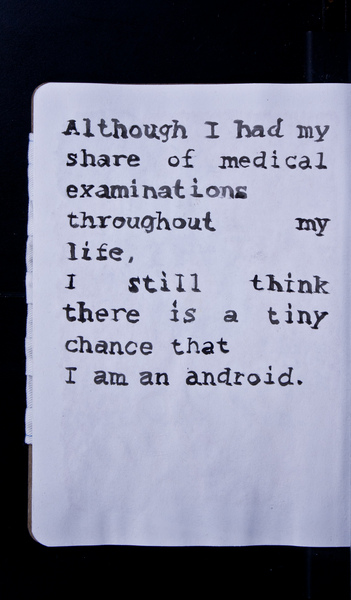 Although I had my
share of medical
examinations
throughout my
life,
I still think
there is a tiny
chance that
I am an android.